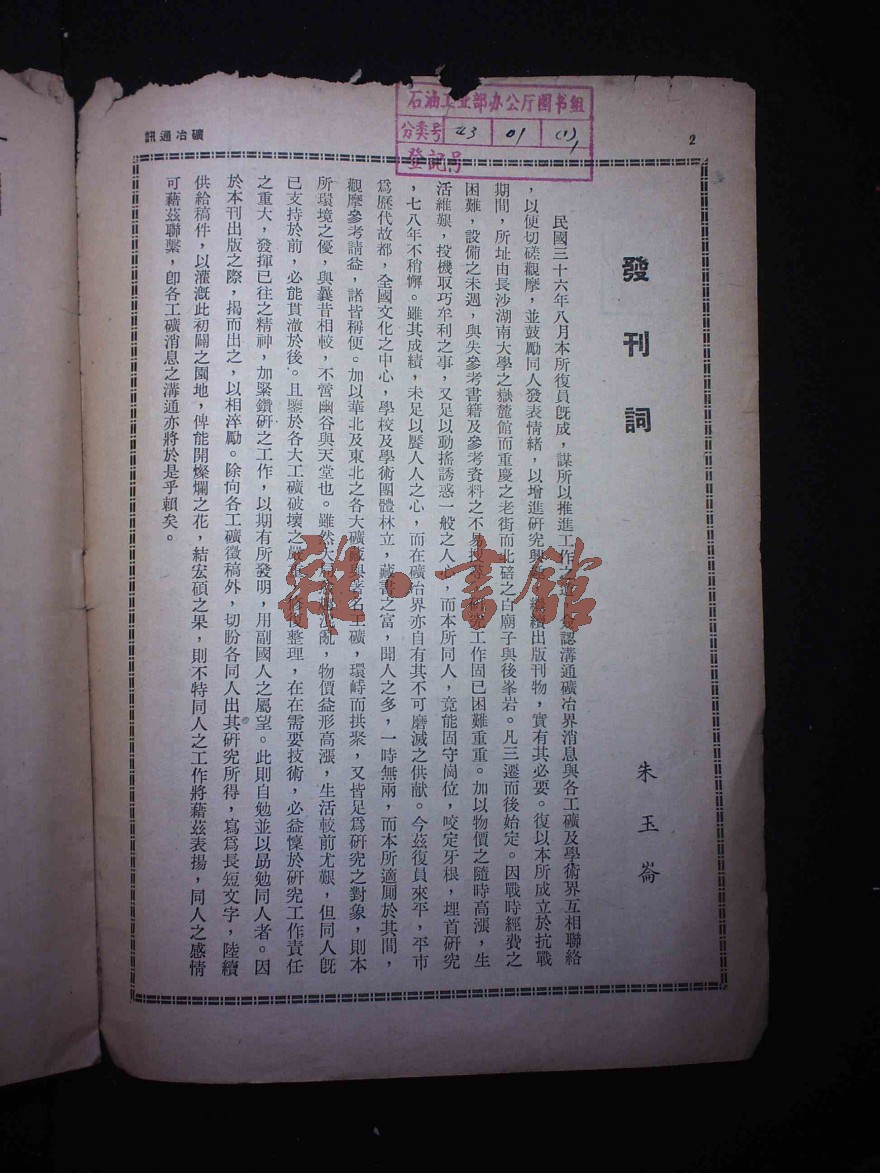 石油工业部办公厅图书组
分类号 23 01 (1)
登記号
2
礦冶通訊
發刊詞
朱玉崙
民國三十六年八月本所復員旣成，謀所以推進工作之認溝通礦冶界消息與各工礦及學術界互相聯絡
，以便切磋觀摩，並鼓勵同人發表情緒，以增進硏究興續出版刊物，實有其必要。復以本所成立於抗戰
期間，所址由長沙湖南大學之嶽麓館而重慶之老街而北碚之白廟子與後峯岩。凡三遷而後始定。因戰時經費之
困難，設備之未週，與失參考書籍及參考資料之不易搜究工作固已困難重重。加以物價之隨時高漲，生
活維艱，投機取巧牟利之事，又足以動搖誘惑一般之人，而本所同人，竟能固守崗位，咬定牙根，埋首硏究
，七八年不稍懈。雖其成績，未足以饜人人之心，而在礦冶界亦自有其不可磨滅之供献。今茲復員來平，平市
爲歷代故都，全國文化之中心，學校及學術團體林立，藏書之富，聞人之多，一時無兩，而本所適厠於其間，
觀摩參考請益，諸皆稱便。加以華北及東北之各大礦廠與著名工礦，環峙而拱聚，又皆足爲硏究之對象，則本
所環境之優，與曩昔相較，不啻幽谷與天堂也。雖然大亂，物價益形高漲，生活較前尤艱，但同人旣
已支持於前，必能貫澈於後。且鑒於各大工礦破壞之嚴復整理，在在需要技術，必益懍於硏究工作責任
之重大，發揮已往之精神，加緊鑽硏之工作，以期有所發明，用副國人之屬望。此則自勉並以勗勉同人者。因
於本刊出版之際，揭而出之，以相淬勵。除向各工礦徵稿外，切盼各同人出其硏究所得，寫爲長短文字，陸續
供給稿件，以灌漑此初闢之園地，俾能開燦爛之花，結宏碩之果，則不特同人之工作將藉茲表揚，同人之感情
可藉茲聯繫，卽各工礦消息之溝通亦將於是乎賴矣。
雜·書館